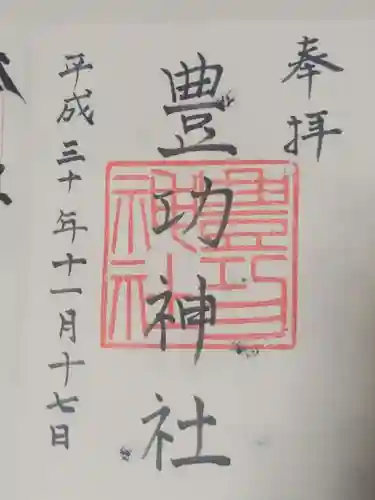 奉拝
豊功神社
平成三十年十一月十七日
豊功神社